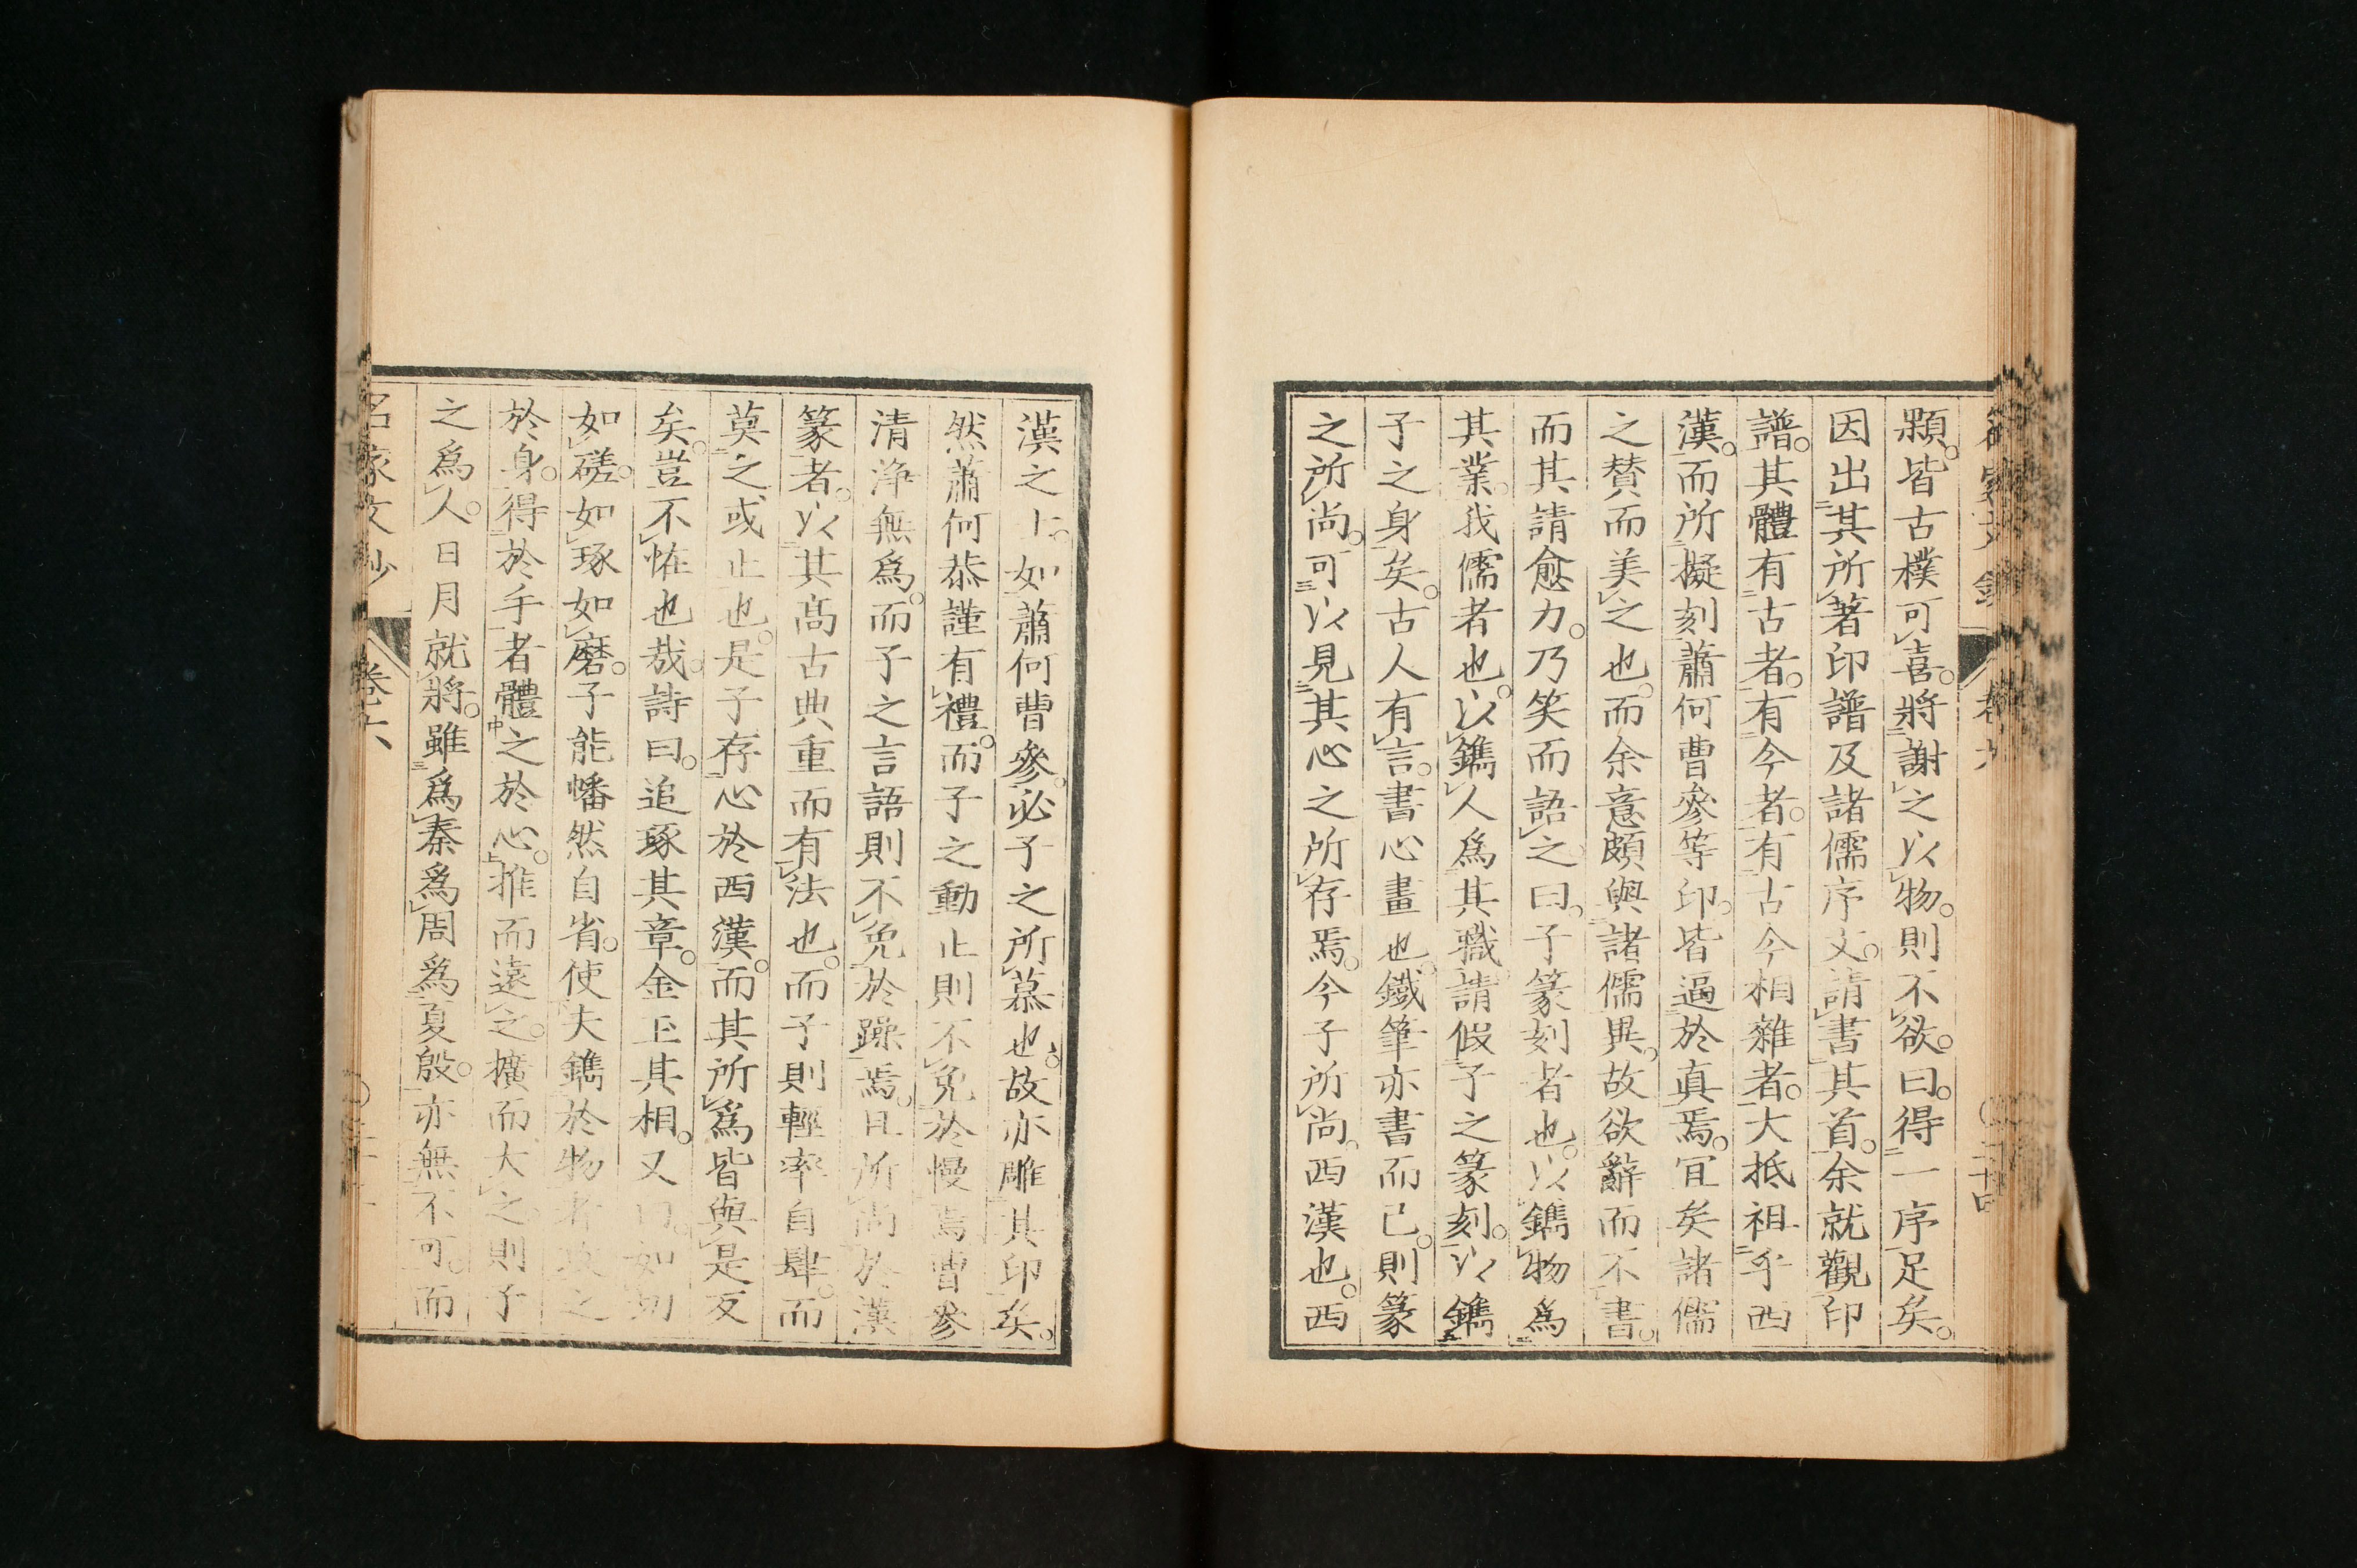 顆。皆古樸可喜。將謝之以物。則不欲。曰。得一序足矣。
因出其所著印譜及諸儒序文。請書其首。余就觀印
譜。其體有古者。有今者。有古今相雜者。大抵祖乎西
漢。而所擬刻蕭何曹參等印。皆逼於真焉。宜矣諸儒
之賛而美之也。而余意頗與諸儒異。故欲辭而不書。
而其請愈力。乃笑而語之曰。子篆刻者也。以鐫物爲
其業。我儒者也。以鐫人爲其職。請假子之篆刻。以鐫
子之身矣。古人有言。書心畫也。鐵筆亦書而已。則篆
之所尚。可以見其心之所存焉。今子所尚。西漢也。西
漢之上。如蕭何曹參。必子之所慕也。故亦雕其印矣。
然蕭何恭謹有禮。而子之動止則不免於慢焉。曹參
清淨無爲。而子之言語則不免於躁焉。且所尚於漢
篆者。以其高古典重而有法也。而子則輕率自肆。而
莫之或止也。是子存心於西漢。而其所爲皆與是反
矣。豈不怪也哉。詩曰。追琢其章。金玉其相。又曰。如切
如磋。如琢如磨。子能幡然自省。使夫鐫於物者改之
於身。得於手者體之於心。推而遠之。擴而大之。則子
之爲人。日月就將。雖爲秦爲周爲夏殷。亦無不可。而
名家文抄 卷六